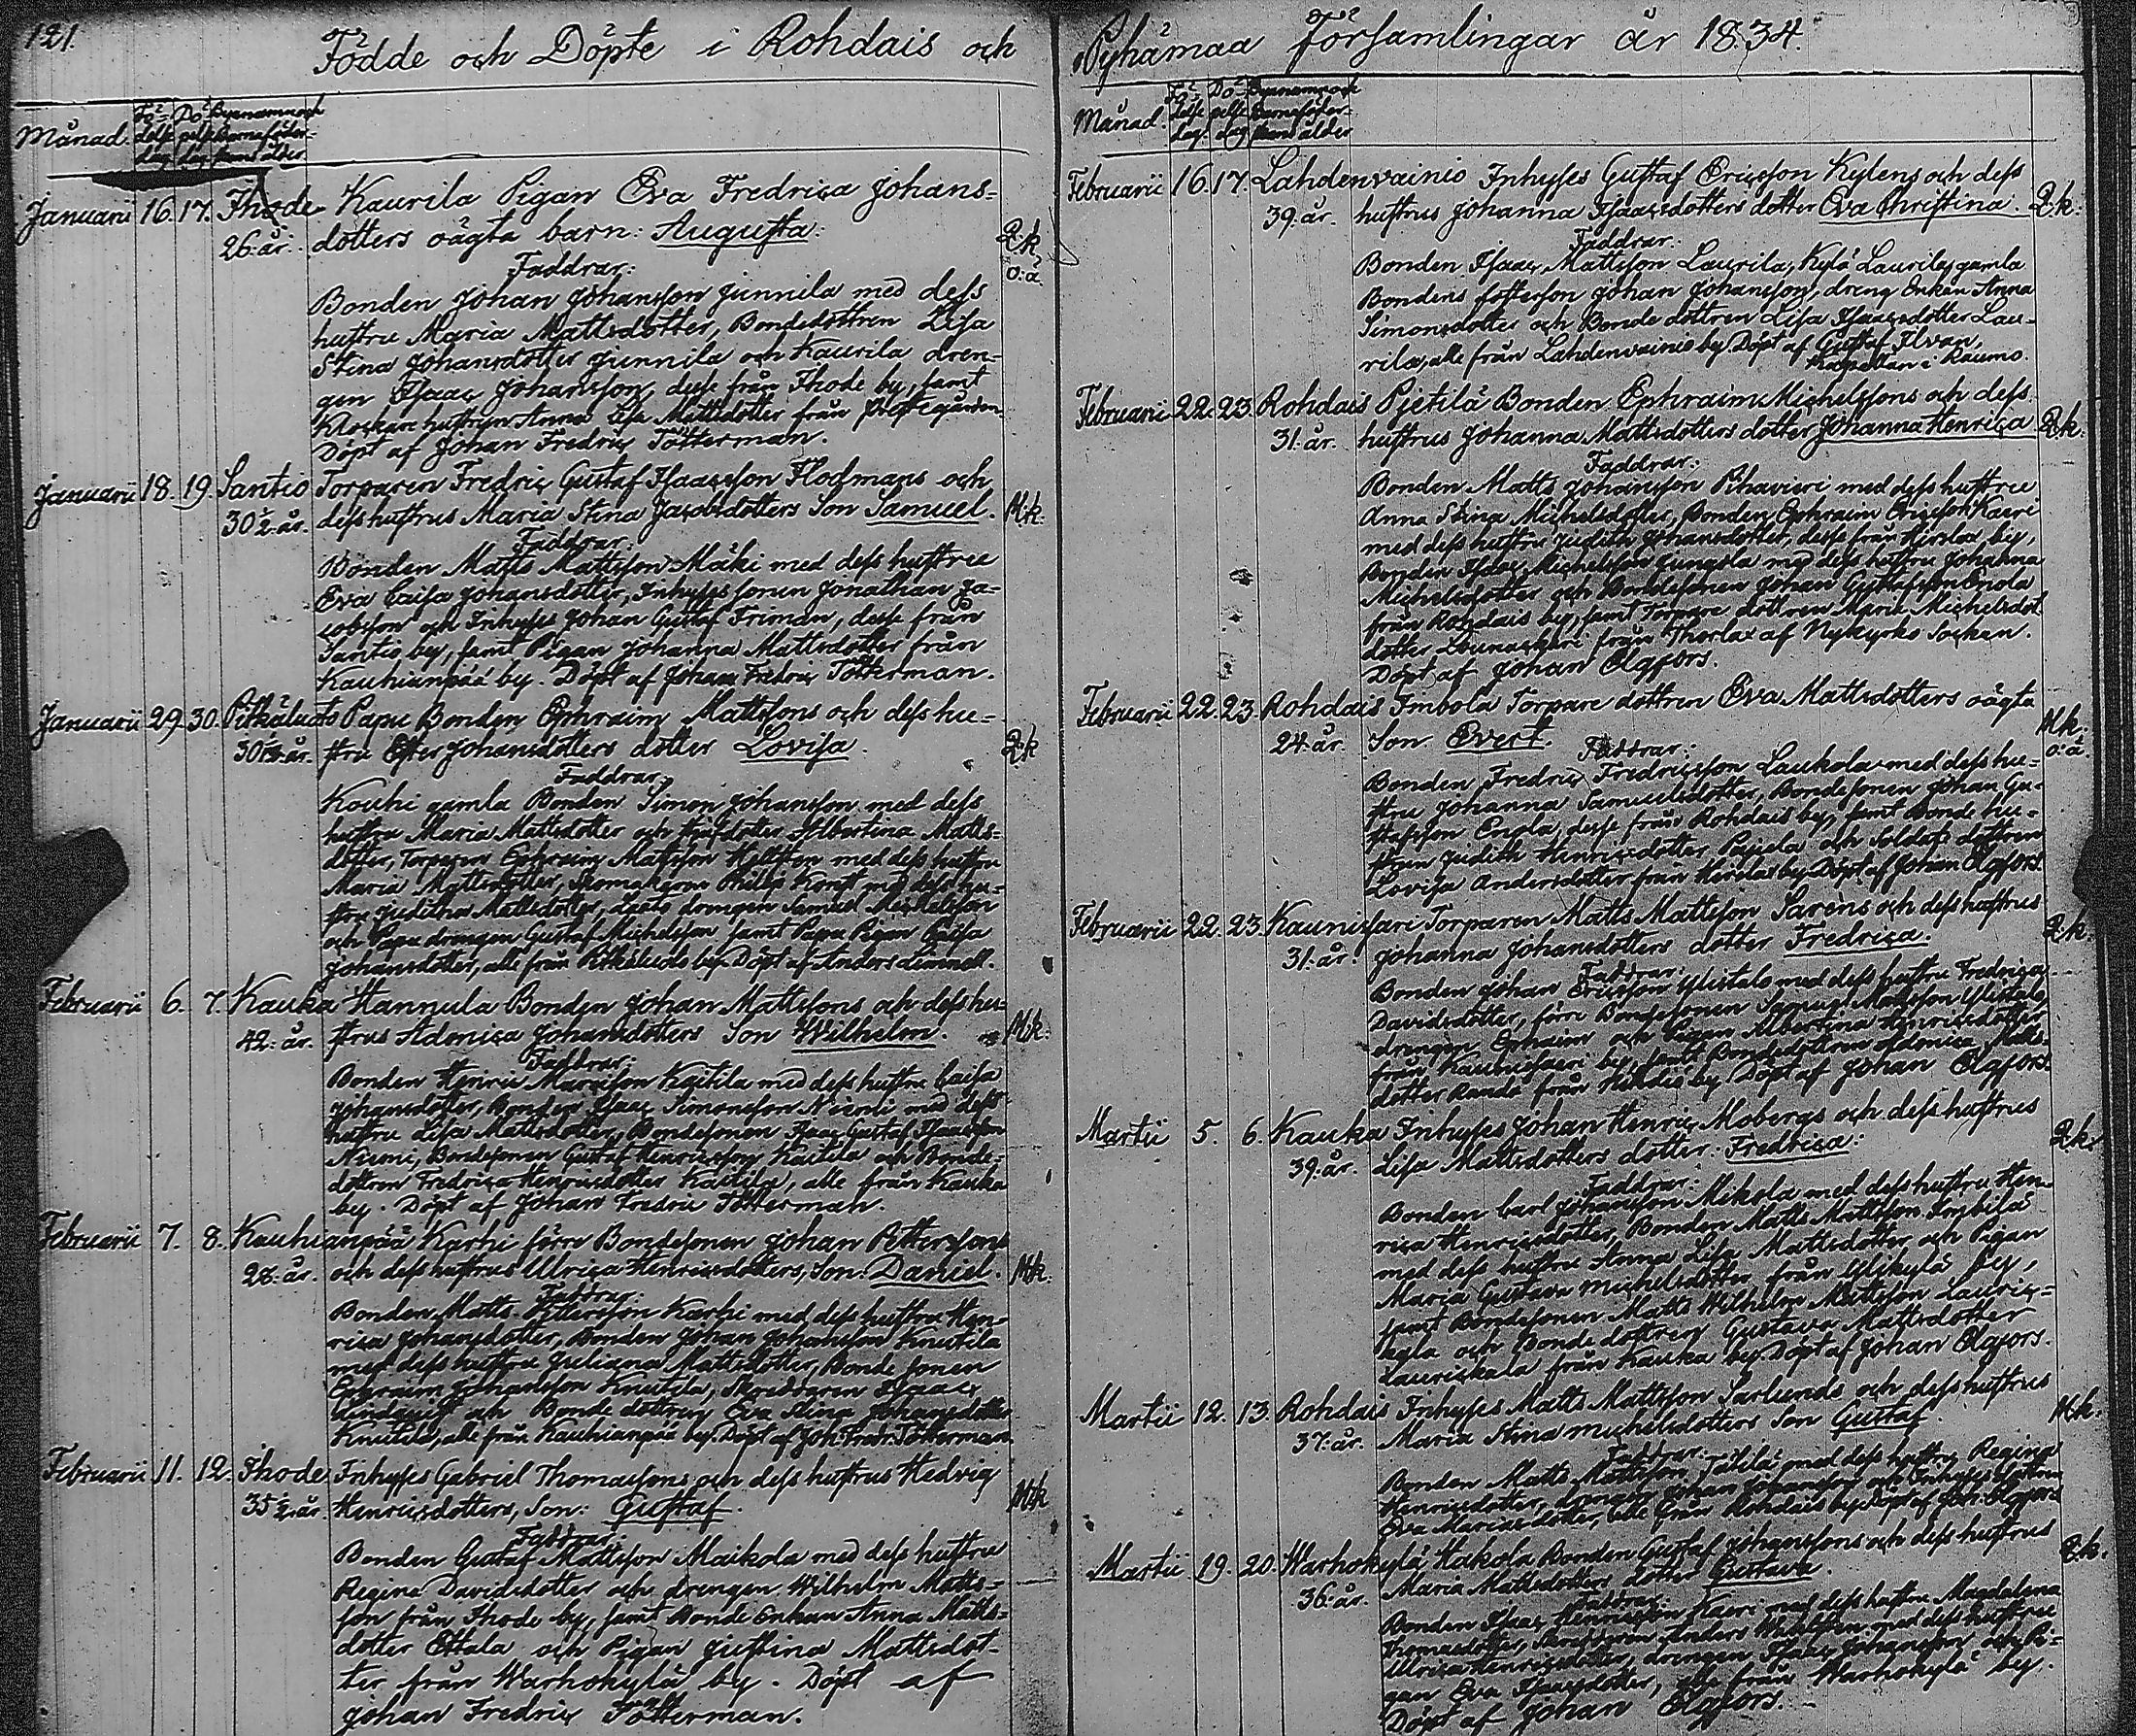 121.
Födde och Döpte i Rohdais och
Månad. Fö= delse dag Dö= pelse dag Byanamn och Barnaföder= skans ålder
Januarii 16. 17. Ihode Kaurila Pigan Eva Fredrica Johans=
26. år. dotters oägta barn: Augusta: Q.k.
o.ä.
Faddrar:
Bonden Johan Johansson Junnila med dess
hustru Maria Mattsdotter, Bondedottren Lisa
Stina Johansdotter Junnila och Kaurila dren=
gen Isaac Johansson, desse från Ihode by, samt
Klockare hustrun Anna Lisa Mattsdotter från Prestegården
Döpt af Johan Fredric Tötterman.
Januarii 18. 19. Santio Torparen Fredric Gustaf Isaacsson Flodmans och
30 1/2 år. dess hustrus Maria Stina Jacobsdotters Son Samuel. M.k.
Faddrar:
Bonden Matts Mattsson Mäki med dess hustru
Eva Caisa Johansdotter, Inhyses sonen Jonathan Ja=
cobsson och Inhyses Johan Gustaf Friman, desse från
Santio by, samt Pigan Johanna Mattsdotter från
Kauhianpää by. Döpt af Johan Fredric Tötterman.
Januarii 29. 30. Pitkäluoto Papu Bonden Ephraim Mattssons och dess hu=
år. stru Ester Johansdotters dotter Lovisa. Q.k
Faddrar:
Kouhi gamla Bonden Simon Johansson med dess
hustru Maria Mattsdotter och Albertina Matts=
dotter, Torparen Ephraim Mattsson med dess hustru
Maria Mattsdotter, Skomakaren Philip med dess hu=
stru Juditha Mattsdotter, drengen Samuel Michelsson
och Papu drengen Gustaf Michelsson samt Papu Pigan Caisa
Johansdotter, alla från Pitkäluoto by. Döpt af Anders Limnell.
Februarii 6. 7. Kauka Hannula Bonden Johan Mattssons och dess hu=
42. år. strus Adonica Johansdotters Son Wilhelm. M.k:
Faddrar:
Bonden Henric Kaitila med dess hustru Caisa
Johansdotter, Bonden Isaac Simonsson Niemi med dess
hustru Lisa Mattsdotter, Bondesonen Isaac Gustaf Isaacsson
Niemi, Bondesonen Gustaf Henricsson Kaitila och Bonde=
dottren Fredrica Henricsdotter Kaitila, alle från Kauka
by. Döpt af Johan Fredric Tötterman.
Februarii 7. 8. Kauhianpää Karhi förre Bondesonen Johan Petterssons
28. år. och dess hustrus Ulrica Henricsdotters, Son: Daniel. M.k:
Faddrar:
Bonden Matts Pettersson Karhi med dess hustru Hen=
rica Johansdotter, Bonden Johan Johansson Knutila
med dess hustru Juliana Mattsdotter, Bonde sonen
Ephraim Johansson Knutila, Skräddaren Isaac
och Bonde dottren Eva Stina Johansdotter
Knutila, alle från Kauhianpää by. Döpt af Joh. Fredr. Tötterman.
Februarii 11. 12. Ihode Inhyses Gabriel Thomassons och dess hustrus Hedvig
35 1/2 år. Henricsdotters, Son: Gustaf. M.k
Faddrar:
Bonden Gustaf Mattsson Maikola med dess hustru
Regina Davidsdotter och drengen Wilhelm Matts=
son från Ihode by, samt Bonde Enkan Anna Matts=
dotter Ettala och Pigan Justina Mattsdot=
ter från Warhokylä by. Döpt af
Johan Fredric Tötterman.
Pyhämaa Församlingar år 1834.
Månad. Fö= delse dag. Dö= pelse dag Byanamn och Barnaföder= skans ålder
Februarii 16. 17. Lahdenvainio Inhyses Gustaf Ericsson Kylens och dess
39. år. hustrus Johanna Isaacsdotters dotter Eva Christina. Q.k:
Faddrar:
Bonden Isaac Mattsson Laurila, Kylä Laurilas gamla
Bondens fosterson Johan Johansson, dreng Enkan Anna
Simonsdotter och Bonde dottren Lisa Isaacsdotter Lau=
rila, alle från Lahdenvainio by. Döpt af Gustaf Ilvan,
Kapellan i Raumo.
Februarii 22. 23. Rohdais Pjetilä Bonden Ephraim Michelssons och dess
31. år. hustrus Johanna Mattsdotters dotter Johanna Henrica. Q.k:
Faddrar:
Bonden Matts Johansson Pihavieri med dess hustru
Anna Stina Michelsdotter, Bonden Ephraim Ericsson Kaeri
med dess hustru Judith Johansdotter, desse från Hirslax by,
Bonden Isaac Michelsson med dess hustru Johanna
Michelsdotter och Bondesonen Johan Gustafsson Enola
från Rohdais by, samt Torpare dottren Maria Michelsdot
dotter från Thorlax af Nykyrko Socken.
Döpt af Johan Elgfors.
Februarii 22. 23. Rohdais Imbola Torpare dottren Eva Mattsdotters oägta
24. år. Son Evert. M.k:
o.ä.
Faddrar:
Bonden Fredric Fredricsson Laukola med dess hu=
stru Johanna Samuelsdotter, Bondesonen Johan Gu=
stafsson Enola, desse från Rohdais by, samt Bonde hu=
strun Judith Henricsdotter och Soldats dottren
Lovisa Andersdotter från Hirslax by. Döpt af Johan Elgfors.
Februarii 22. 23. Kaunissari Torparen Matts Mattsson Sarens och dess hustrus
31. år. Johanna Johansdotters dotter Fredrica. Q.k:
Faddrar:
Bonden Johan Ericsson Ylistalo med dess hustru Fredrica
Davidsdotter, förre Bondesonen Mattsson Ylistalo,
drengen Ephraim och Pigan Albertina Henricsdotter
från Kaunissari by, samt Bondedottren Adonica Matts=
dotter från by. Döpt af Johan Elgfors.
Martii 5. 6. Kauka Inhyses Johan Henric Mobergs och dess hustrus
39. år. Lisa Mattsdotters dotter: Fredrica: Q.k
Faddrar:
Bonden Carl Johansson Mikola med dess hustru Hen=
rica Henricsdotter, Bonden Matts Mattsson
med dess hustru Anna Lisa Mattsdotter och Pigan
Maria Gustava Michelsdotter från Ylikylä by,
samt Bondesonen Matts Wilhelm Mattsson Lauris=
kala och Bonde dottren Gustava Mattsdotter
Lauriskala från Kauka by. Döpt af Johan Elgfors.
Martii 12. 13. Rohdais Inhyses Matts Mattsson Sarlunds och dess hustrus
37. år. Maria Stina Michelsdotters Son Gustaf. M.k:
Faddrar:
Bonden Matts Mattsson med dess hustru Regina
Henricsdotter, drengen Johan Johansson och Inhyses dottren
Eva Mariasdotter, alle från Rohdais by. Döpt af Joh: Elgfors
Martii 19. 20. Warhokylä Hakola Bonden Gustaf Johanssons och dess hustrus
36. år. Maria Mattsdotters dotter Gustava. Q.k.
Faddrar:
Bonden Isaac Henricsson Kaeri med dess hustru Magdalena
Thomasdotter, Anders med dess hustru
Ulrica Henricsdotter, drengen Isaac Johansson och Pi=
gan Eva Isaacsdotter, alle från Warhokylä by.
Döpt af Johan Elgfors.